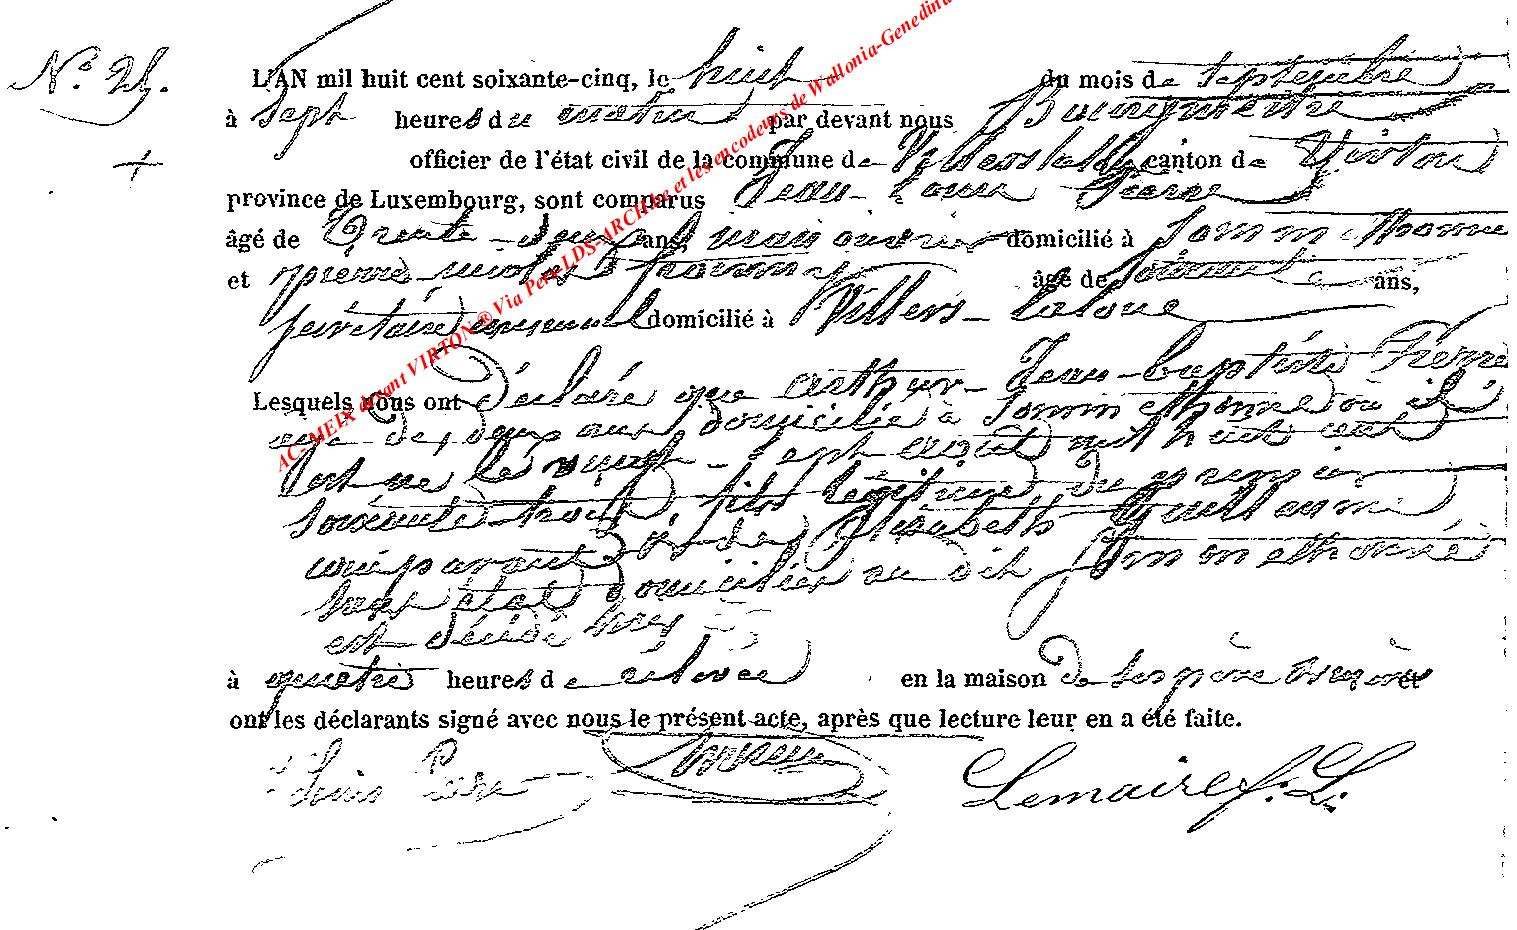 N.° 25.
L'AN mil huit cent soixante-cinq, le huit du mois de septembre
à sept heures du matin par devant nous Bourgmestre
officier de l'état civil de la commune de Villers la loue canton de Virton
province de Luxembourg, sont comparus Jean-Louis Pierre
âgé de Trente-deux ans, domicilié à Sommethonne
et pierre nicolas âgé de soixante ans,
secrétaire communal domicilié à Villers-laloue
Lesquels nous ont déclaré que arthur-Jean-baptiste Pierre
agé de deux ans domicilié à Sommethonne où il
est né le vingt-sept août mil huit cent
soixante-trois, fils légitime du premier
comparant et de Elisabeth Guillaume
domiciliés au dit Sommethonne
est décédé hier
à quatre heures de relevée en la maison de ses père et mère et
ont les déclarants signé avec nous le présent acte, après que lecture leur en a été faite.
Louis Pierre
Lemaire f. L.
AC-MEIX devant VIRTON ® Via Pero LDS-ARCH.be et les encodeurs de Wallonia-Genedinfo